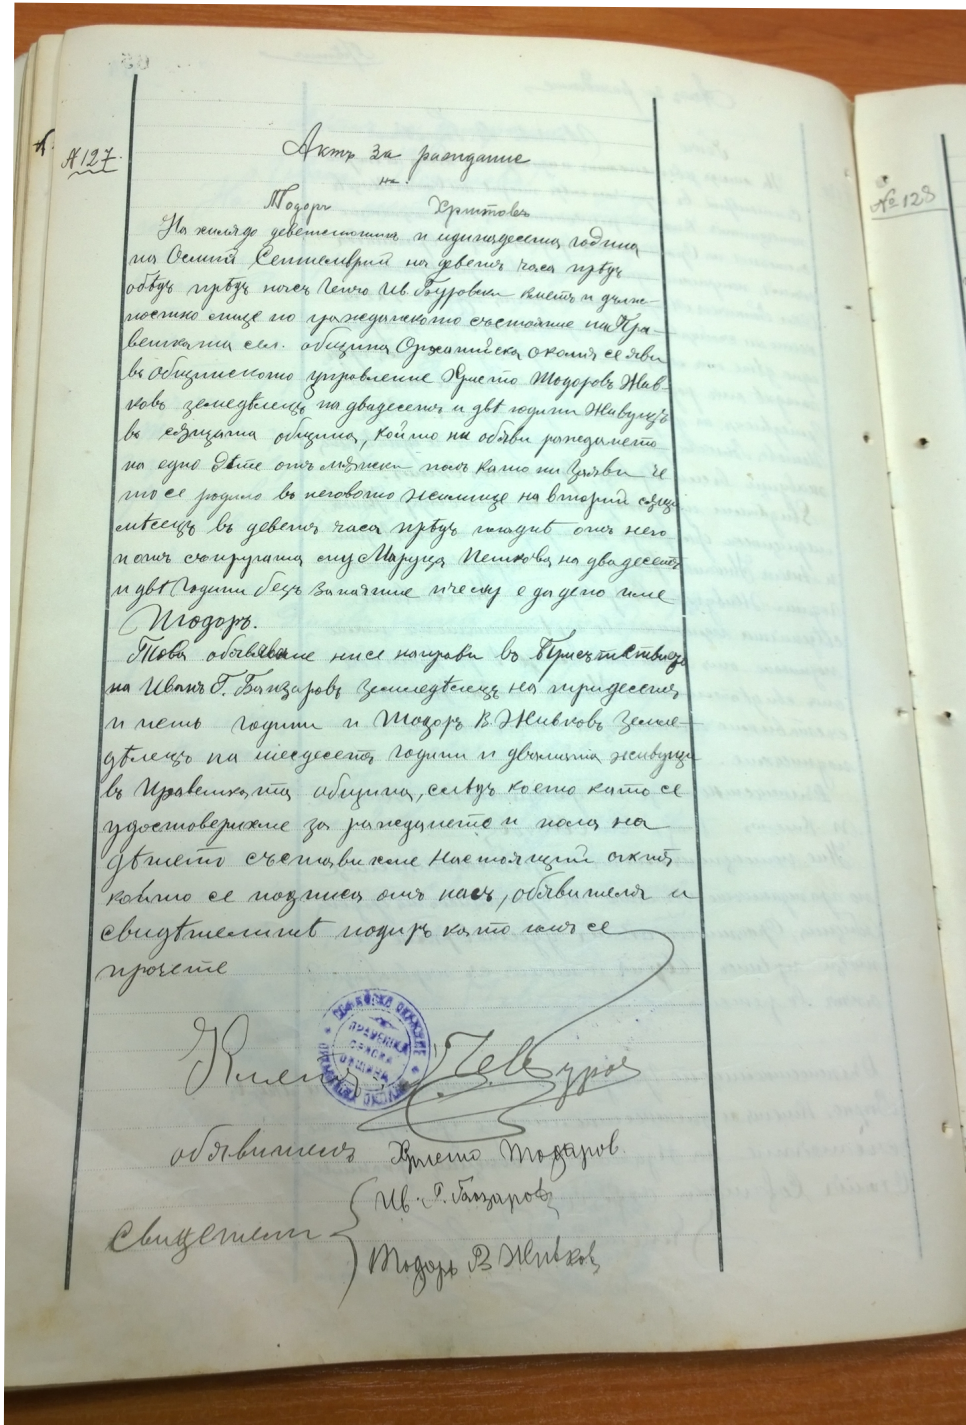 № 127.
Актъ за раждание
на
Тодоръ Христовъ
На хилядо деветстотинъ и единадесета година
на Осмий Септемврий на деветъ часа прѣдъ
обѣдъ прѣдъ насъ Генчо Ив. Буровски кметъ и длъж-
ностно лице по гражданското състояние на Пра-
вешката сел. община Орханийска околия се яви
въ общинското управление Христо Тодоровъ Жив-
ковъ земедѣлецъ на двадесетъ и двѣ години живущъ
въ същата община, който ни обяви раждането
на едно дѣте отъ мѫжки полъ като ни заяви че
то се родило въ неговото жилище на вторий същи
мѣсецъ въ деветъ часа прѣдъ пладнѣ отъ него
и отъ съпругата му Маруца Пенкова на двадесетъ
и двѣ години безъ занятие и че му е дадено име
Тодоръ.
Това обявление ни се направи въ Присѫтствието
на Иванъ Г. Банзаровъ земледѣлецъ на тридесетъ
и петь години и Тодоръ В. Живковъ Земле-
дѣлецъ на шесдесетъ години и двамата живущи
въ Правешката община, слѣдъ което като се
удостоверихме за раждането и пола на
дѣтето съставихме настоящий актъ
който се подписа отъ насъ, обявителя и
свидѣтелитѣ подиръ като имъ се
прочете
Кметъ:
СОФИЙСКО ОКРѪЖИЕ
ПРАВЕШКА
СЕЛСКА
ОБЩИНА
обявитель Христо Тодаров.
Ив. Г. Банзаровъ
свидетели
Тодоръ В Живков
№ 128